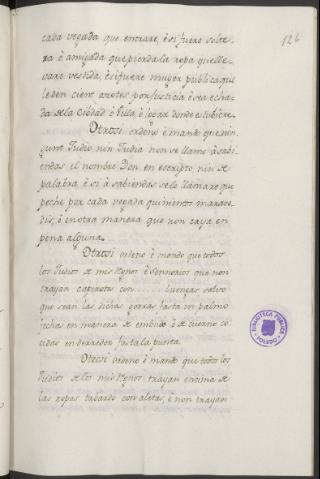 126
cada vegada que entrare, è si fuere solte-
ra ò amigada que pierda la ropa que lle-
vare vestida, è si fuere muger publica que
le den cient azotes por Justicia è sea echa-
da de la Ciudad ò Villa, ò logar donde estubiere.
Otrossi ordeno è mando que nin-
gunt Judio nin Judia non se llame à sabi-
endas el nombre Don en escripto nin de
palabra, è si à sabiendas se lo llamare que
peche por cada vegada quinientos marave-
dis; è en otra manera que non caya en
pena alguna.
Otrossi ordeno è mando que todos
los Judios de mis Regnos è Sennorios que non
trayan capirotes con luengas salvo
que sean las dichas fasta un palmo
fechas en manera de embudo ò de cuerno co-
sidas en derredor fasta la puerta.
Otrossi ordeno è mando que todos los
Judios de los mis Regnos trayan encima de
las ropas tabardo con aletas, è non trayan
BIBLIOTECA PUBLICA
TOLEDO